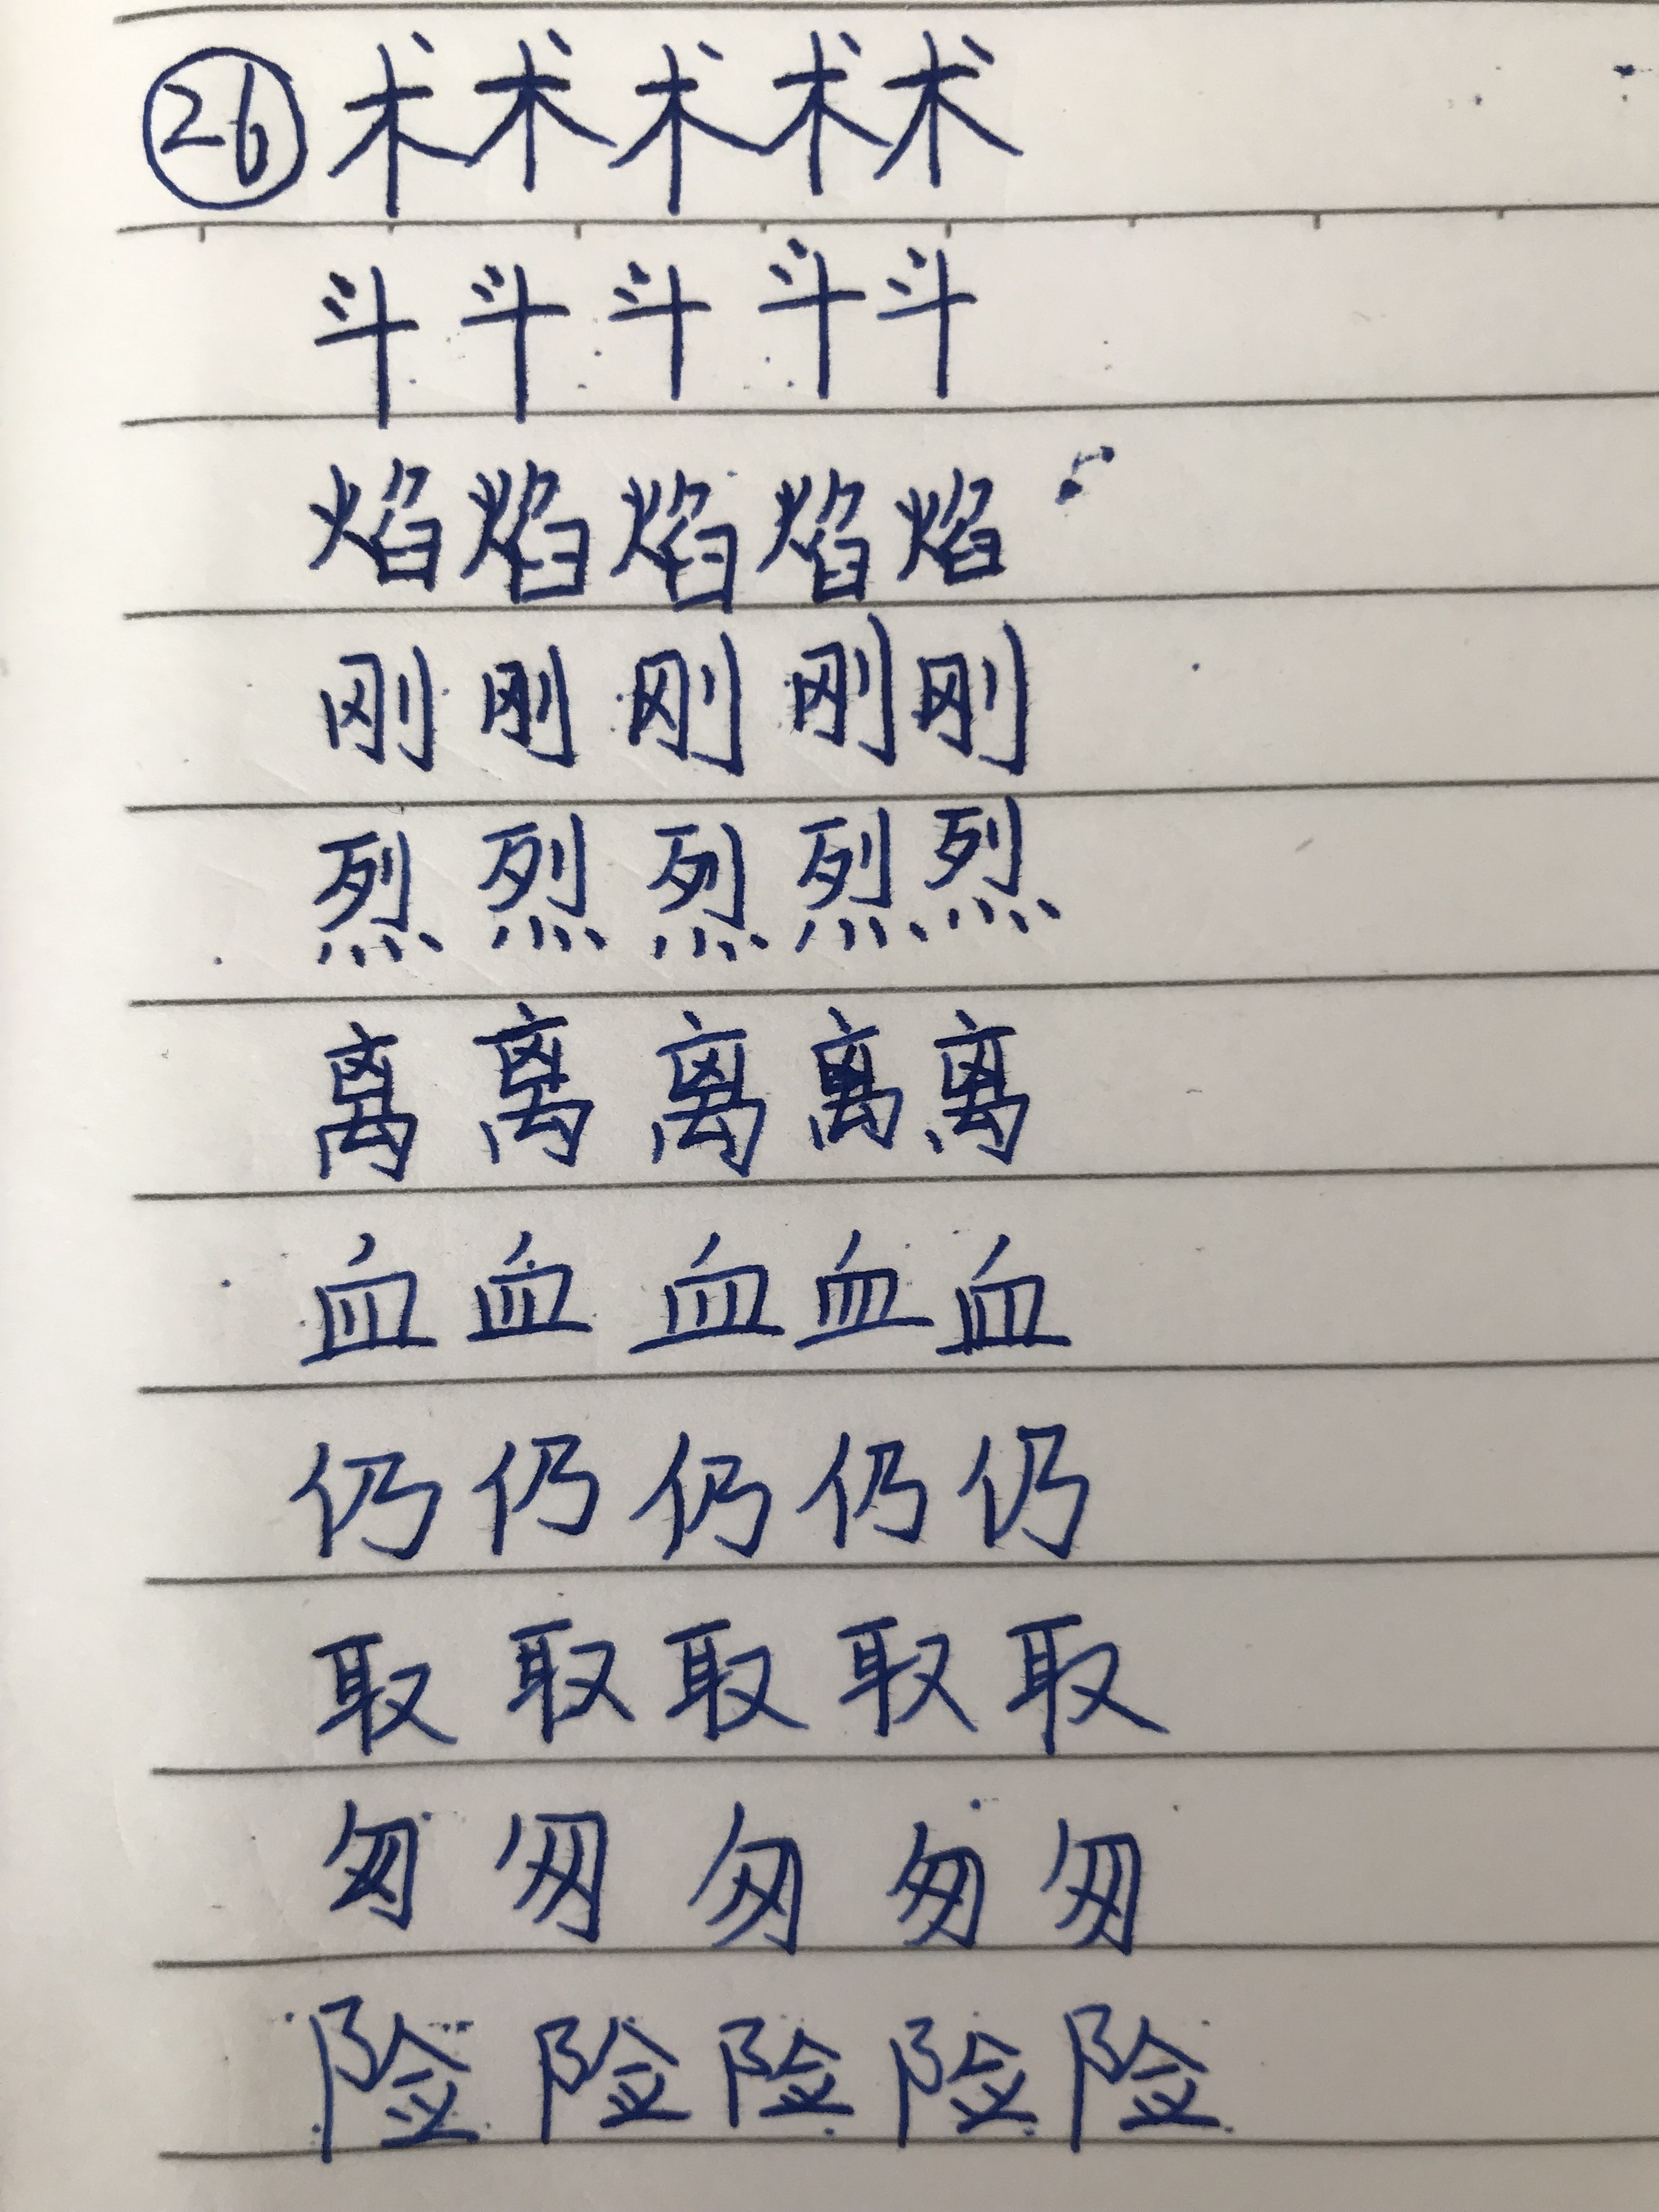 ㉖术术术术术
斗斗斗斗斗
焰焰焰焰焰
刚刚刚刚刚
烈烈烈烈烈
离离离离离
血血血血血
仍仍仍仍仍
取取取取取
匆匆匆匆匆
险险险险险